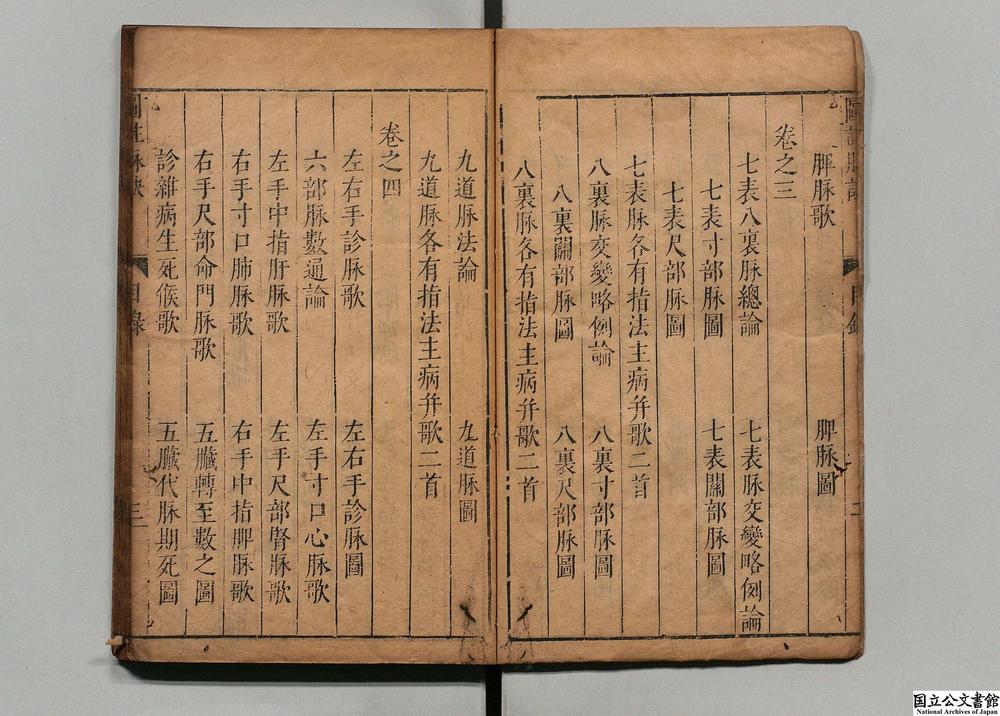 脾脉歌　脾脉圖
卷之三
七表八裏脉總論　七表脉交變略例論
七表寸部脉圖　七表關部脉圖
七表尺部脉圖
七表脉各有指法主病并歌二首
八裏脉交變略例論　八裏寸部脉圖
八裏關部脉圖　八裏尺部脉圖
八裏脉各有指法主病并歌二首
九道脉法論　九道脉圖
九道脉各有指法主病并歌二首
卷之四
左右手診脉歌　左右手診脉圖
六部脉數通論　左手寸口心脉歌
左手中指肝脉歌　左手尺部腎脉歌
右手寸口肺脉歌　右手中指脾脉歌
右手尺部命門脉歌　五臟轉至數之圖
診雜病生死候歌　五臟代脉期死圖
脉訣　目錄　三
国立公文書館
National Archives of Japan